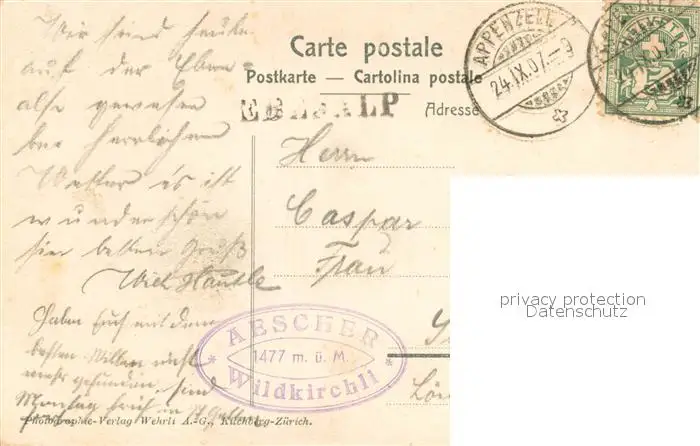 Carte postale
Postkarte — Cartolina postale
Adresse
EBENALP
APPENZELL
24.IX.07.-9
HELVETIA
Wir sind heute
auf der Eben-
alp gewesen
bei herrlichem
Wetter es ist
wunderschön
hier besten Gruß
Haben Euch mit dem
besten Willen nicht
mehr gefunden, sind
Montag früh in St. Gallen
Herrn
Caspar
Frau
AESCHER
1477 m. ü. M.
Wildkirchli
Photographie-Verlag Wehrli A.-G., Kilchberg-Zürich.
privacy protection
Datenschutz